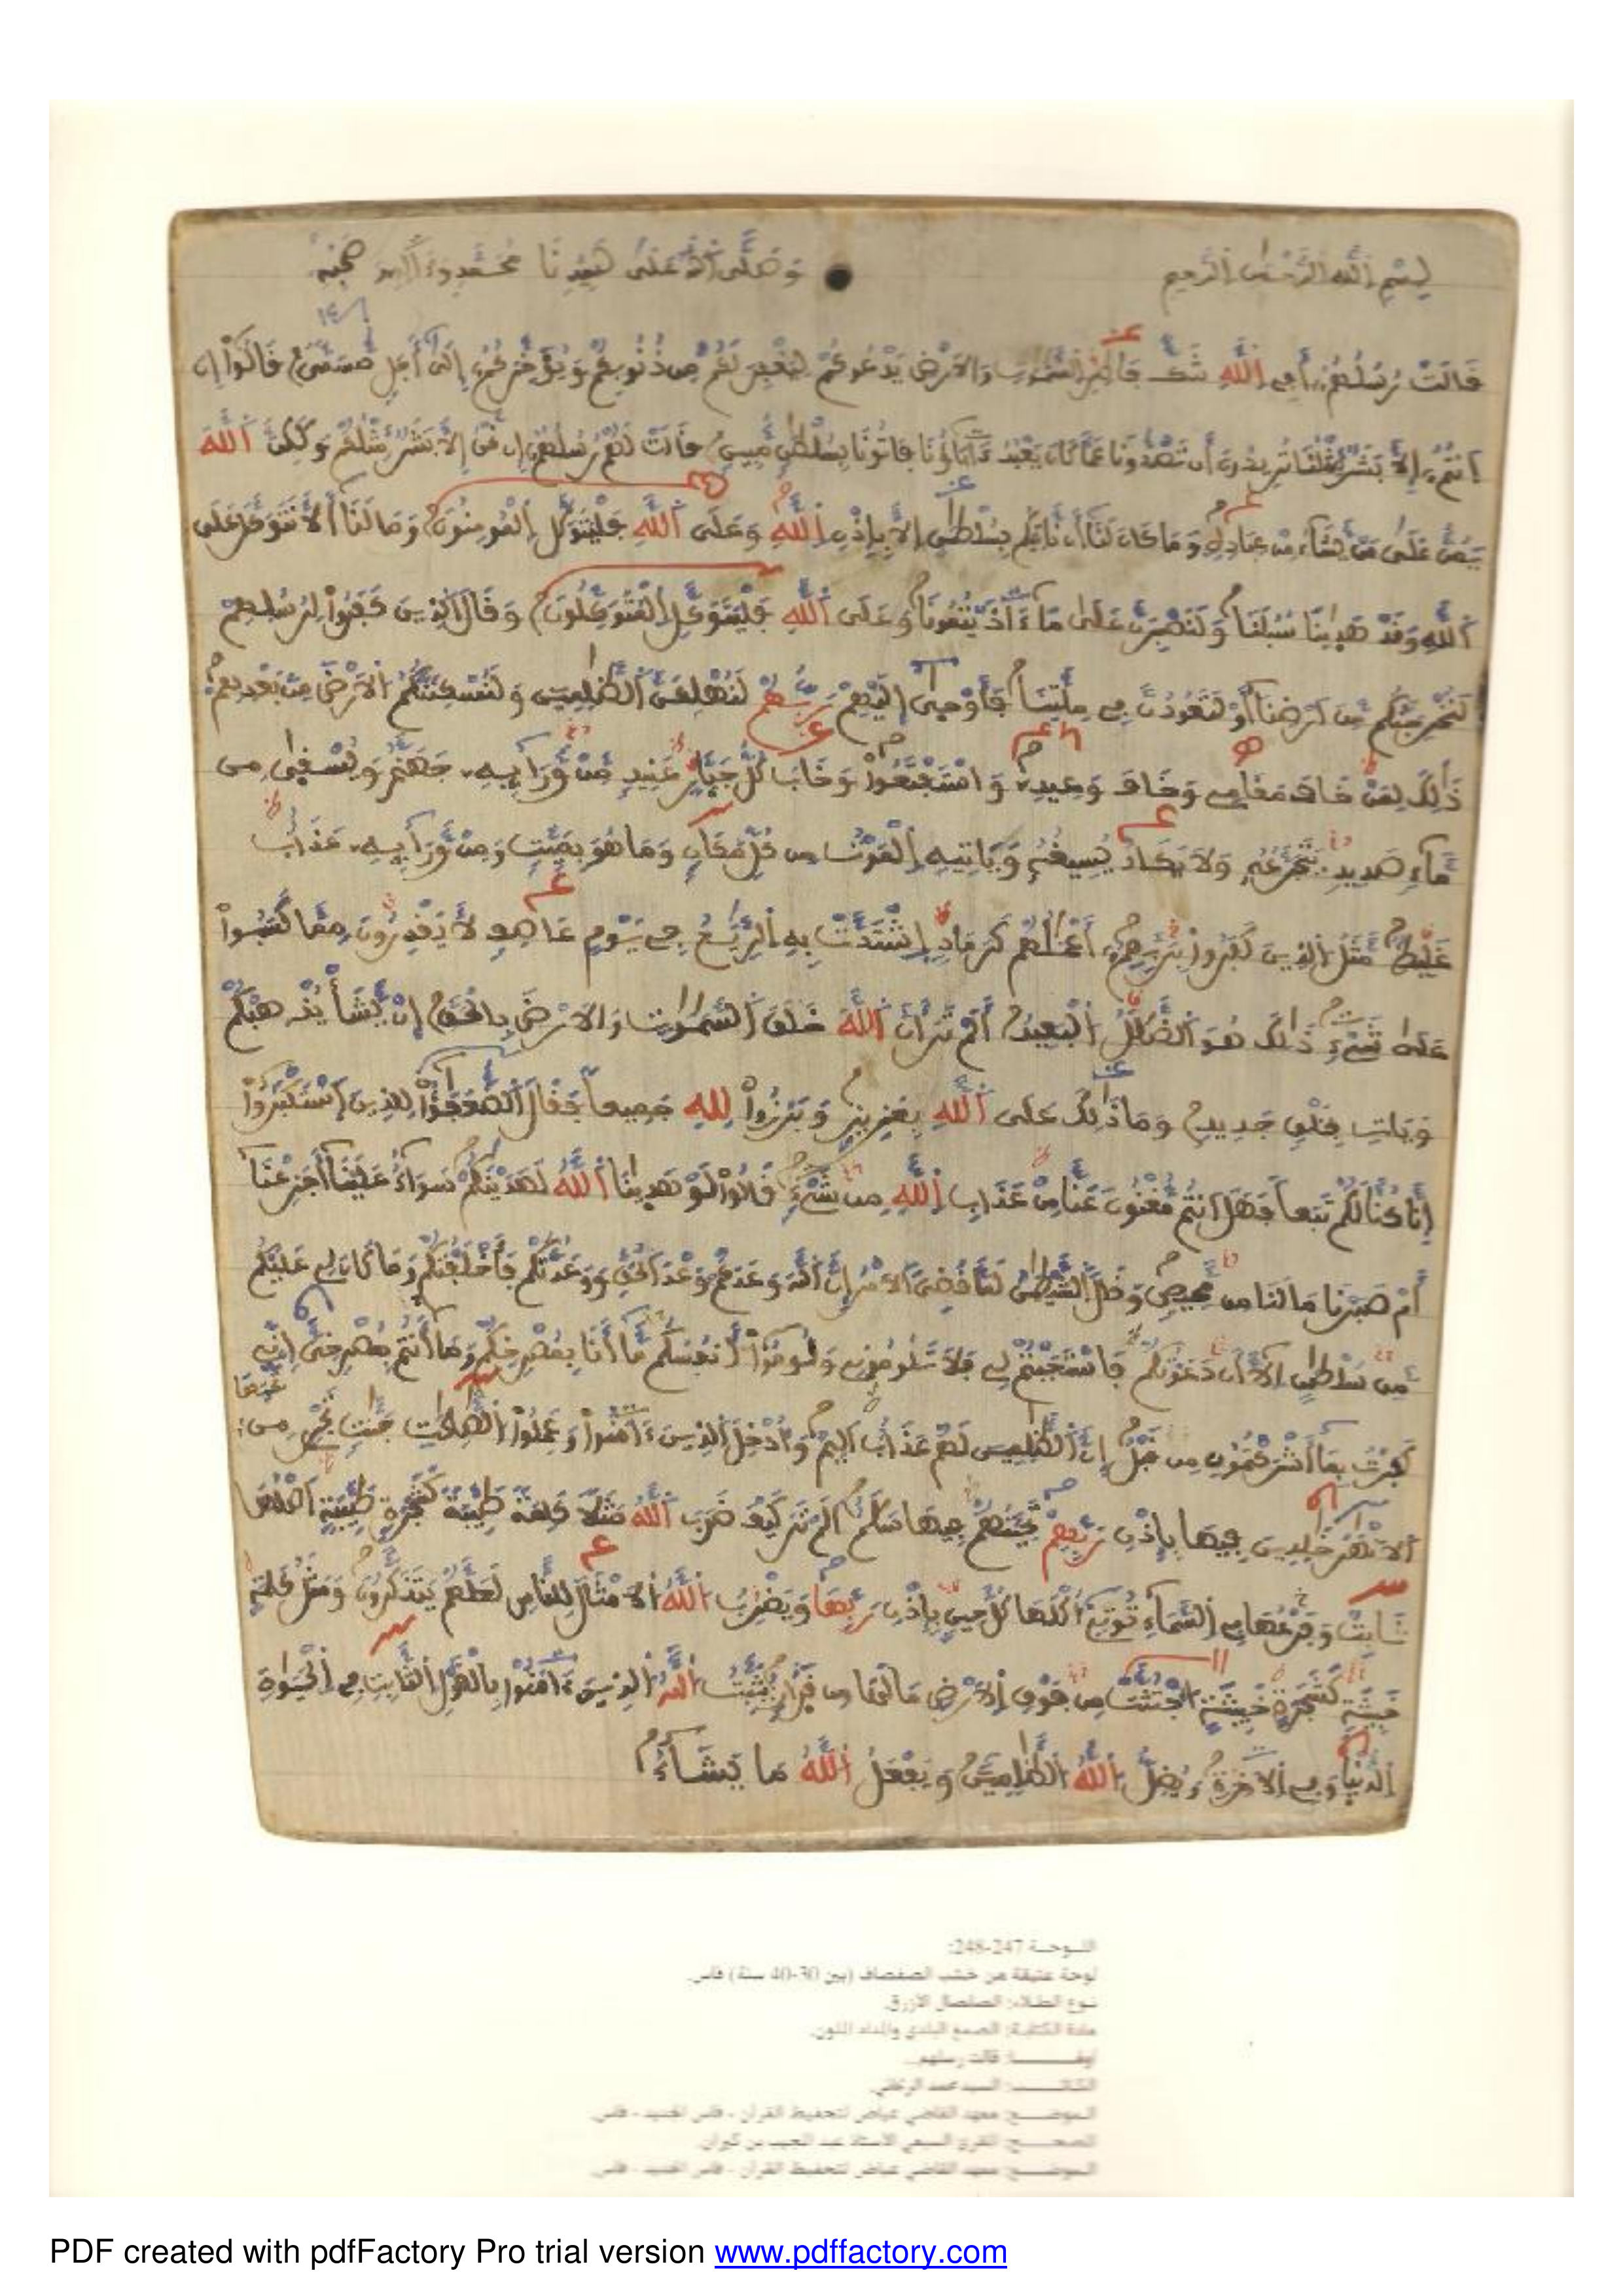 بِسْمِ اللَّهِ الرَّحْمَٰنِ الرَّحِيمِ وَصَلَّى اللَّهُ عَلَى سَيِّدِنَا مُحَمَّدٍ وَءَالِهِ وَصَحْبِهِ
قَالَتْ رُسُلُهُمُ أَفِي اللَّهِ شَكٌّ فَاطِرِ السَّمَٰوَٰتِ وَالَارْضِ يَدْعُوكُمْ لِيَغْفِرَ لَكُم مِّن ذُنُوبِكُمْ وَيُؤَخِّرَكُمُ إِلَىٰ أَجَلٍ مُّسَمًّى قَالُوا إِنَ
اَنتُمُ إِلَّا بَشَرٌ مِّثْلُنَا تُرِيدُونَ أَن تَصُدُّونَا عَمَّا كَانَ يَعْبُدُ ءَابَاؤُنَا فَاتُونَا بِسُلْطَٰنٍ مُّبِينٍ قَالَتْ لَهُمْ رُسُلُهُمُ إِن نَّحْنُ إِلَّا بَشَرٌ مِّثْلُكُمْ وَلَٰكِنَّ اللَّهَ
يَمُنُّ عَلَىٰ مَن يَّشَاءُ مِنْ عِبَادِهِ وَمَا كَانَ لَنَا أَن نَّاتِيَكُم بِسُلْطَٰنٍ اِلَّا بِإِذْنِ اللَّهِ وَعَلَى اللَّهِ فَلْيَتَوَكَّلِ الْمُومِنُونَ وَمَا لَنَا أَلَّا نَتَوَكَّلَ عَلَى
اللَّهِ وَقَدْ هَدَيٰنَا سُبُلَنَا وَلَنَصْبِرَنَّ عَلَىٰ مَا ءَاذَيْتُمُونَا وَعَلَى اللَّهِ فَلْيَتَوَكَّلِ الْمُتَوَكِّلُونَ وَقَالَ الذِينَ كَفَرُوا لِرُسُلِهِمْ
لَنُخْرِجَنَّكُم مِّنَ اَرْضِنَا أَوْ لَتَعُودُنَّ فِي مِلَّتِنَا فَأَوْحَىٰ إِلَيْهِمْ رَبُّهُمْ لَنُهْلِكَنَّ الظَّٰلِمِينَ وَلَنُسْكِنَنَّكُمُ الَارْضَ مِن بَعْدِهِمْ
ذَٰلِكَ لِمَنْ خَافَ مَقَامِي وَخَافَ وَعِيدِ وَاسْتَفْتَحُوا وَخَابَ كُلُّ جَبَّارٍ عَنِيدٍ مِّنْ وَّرَائِهِ جَهَنَّمُ وَيُسْقَىٰ مِن
مَّاءٍ صَدِيدٍ يَتَجَرَّعُهُ وَلَا يَكَادُ يُسِيغُهُ وَيَاتِيهِ الْمَوْتُ مِن كُلِّ مَكَانٍ وَمَا هُوَ بِمَيِّتٍ وَمِنْ وَّرَائِهِ عَذَابٌ
غَلِيظٌ مَّثَلُ الذِينَ كَفَرُوا بِرَبِّهِمُ أَعْمَٰلُهُمْ كَرَمَادٍ اِشْتَدَّتْ بِهِ الرِّيَٰحُ فِي يَوْمٍ عَاصِفٍ لَّا يَقْدِرُونَ مِمَّا كَسَبُوا
عَلَىٰ شَيْءٍ ذَٰلِكَ هُوَ الضَّلَٰلُ الْبَعِيدُ أَلَمْ تَرَ أَنَّ اللَّهَ خَلَقَ السَّمَٰوَٰتِ وَالَارْضَ بِالْحَقِّ إِنْ يَّشَأْ يُذْهِبْكُمْ
وَيَاتِ بِخَلْقٍ جَدِيدٍ وَمَا ذَٰلِكَ عَلَى اللَّهِ بِعَزِيزٍ وَبَرَزُوا لِلهِ جَمِيعاً فَقَالَ الضُّعَفَٰؤُا لِلذِينَ اسْتَكْبَرُوا
إِنَّا كُنَّا لَكُمْ تَبَعاً فَهَلَ اَنتُم مُّغْنُونَ عَنَّا مِنْ عَذَابِ اللَّهِ مِن شَيْءٍ قَالُوا لَوْ هَدَيٰنَا اللَّهُ لَهَدَيْنَٰكُمْ سَوَاءٌ عَلَيْنَا أَجَزِعْنَا
أَمْ صَبَرْنَا مَا لَنَا مِن مَّحِيصٍ وَقَالَ الشَّيْطَٰنُ لَمَّا قُضِيَ الَامْرُ إِنَّ اللَّهَ وَعَدَكُمْ وَعْدَ الْحَقِّ وَوَعَدتُّكُمْ فَأَخْلَفْتُكُمْ وَمَا كَانَ لِي عَلَيْكُم
مِّن سُلْطَٰنٍ اِلَّا أَن دَعَوْتُكُمْ فَاسْتَجَبْتُمْ لِي فَلَا تَلُومُونِي وَلُومُوا أَنفُسَكُم مَّا أَنَا بِمُصْرِخِكُمْ وَمَا أَنتُم بِمُصْرِخِيَّ إِنِّي
كَفَرْتُ بِمَا أَشْرَكْتُمُونِ مِن قَبْلُ إِنَّ الظَّٰلِمِينَ لَهُمْ عَذَابٌ اَلِيمٌ وَأُدْخِلَ الذِينَ ءَامَنُوا وَعَمِلُوا الصَّٰلِحَٰتِ جَنَّٰتٍ تَجْرِي مِن تَحْتِهَا
الَانْهَٰرُ خَٰلِدِينَ فِيهَا بِإِذْنِ رَبِّهِمْ تَحِيَّتُهُمْ فِيهَا سَلَٰمٌ اَلَمْ تَرَ كَيْفَ ضَرَبَ اللَّهُ مَثَلًا كَلِمَةً طَيِّبَةً كَشَجَرَةٍ طَيِّبَةٍ اَصْلُهَا
ثَابِتٌ وَفَرْعُهَا فِي السَّمَاءِ تُوتِي أُكْلَهَا كُلَّ حِينٍ بِإِذْنِ رَبِّهَا وَيَضْرِبُ اللَّهُ الَامْثَالَ لِلنَّاسِ لَعَلَّهُمْ يَتَذَكَّرُونَ وَمَثَلُ كَلِمَةٍ
خَبِيثَةٍ كَشَجَرَةٍ خَبِيثَةٍ اجْتُثَّتْ مِن فَوْقِ الَارْضِ مَا لَهَا مِن قَرَارٍ يُثَبِّتُ اللَّهُ الذِينَ ءَامَنُوا بِالْقَوْلِ الثَّابِتِ فِي الْحَيَوٰةِ
الدُّنْيَا وَفِي الَاخِرَةِ وَيُضِلُّ اللَّهُ الظَّٰلِمِينَ وَيَفْعَلُ اللَّهُ مَا يَشَاءُ
اللوحة 247-248:
لوحة عتيقة من خشب الصفصاف (بين 30-40 سنة) فاس.
نوع الطلاء: الصلصال الأزرق.
مادة الكتابة: الصمغ البلدي والمداد الملون.
قالت رسلهم..
الكاتب: السيد محمد
الموضع: معهد القاضي عياض لتحفيظ القرآن - فاس الجديد - فاس.
المصحح: المقرئ السبعي الأستاذ عبد المجيد بن كيران.
الموضع: معهد القاضي عياض لتحفيظ القرآن - فاس الجديد - فاس.
PDF created with pdfFactory Pro trial version www.pdffactory.com